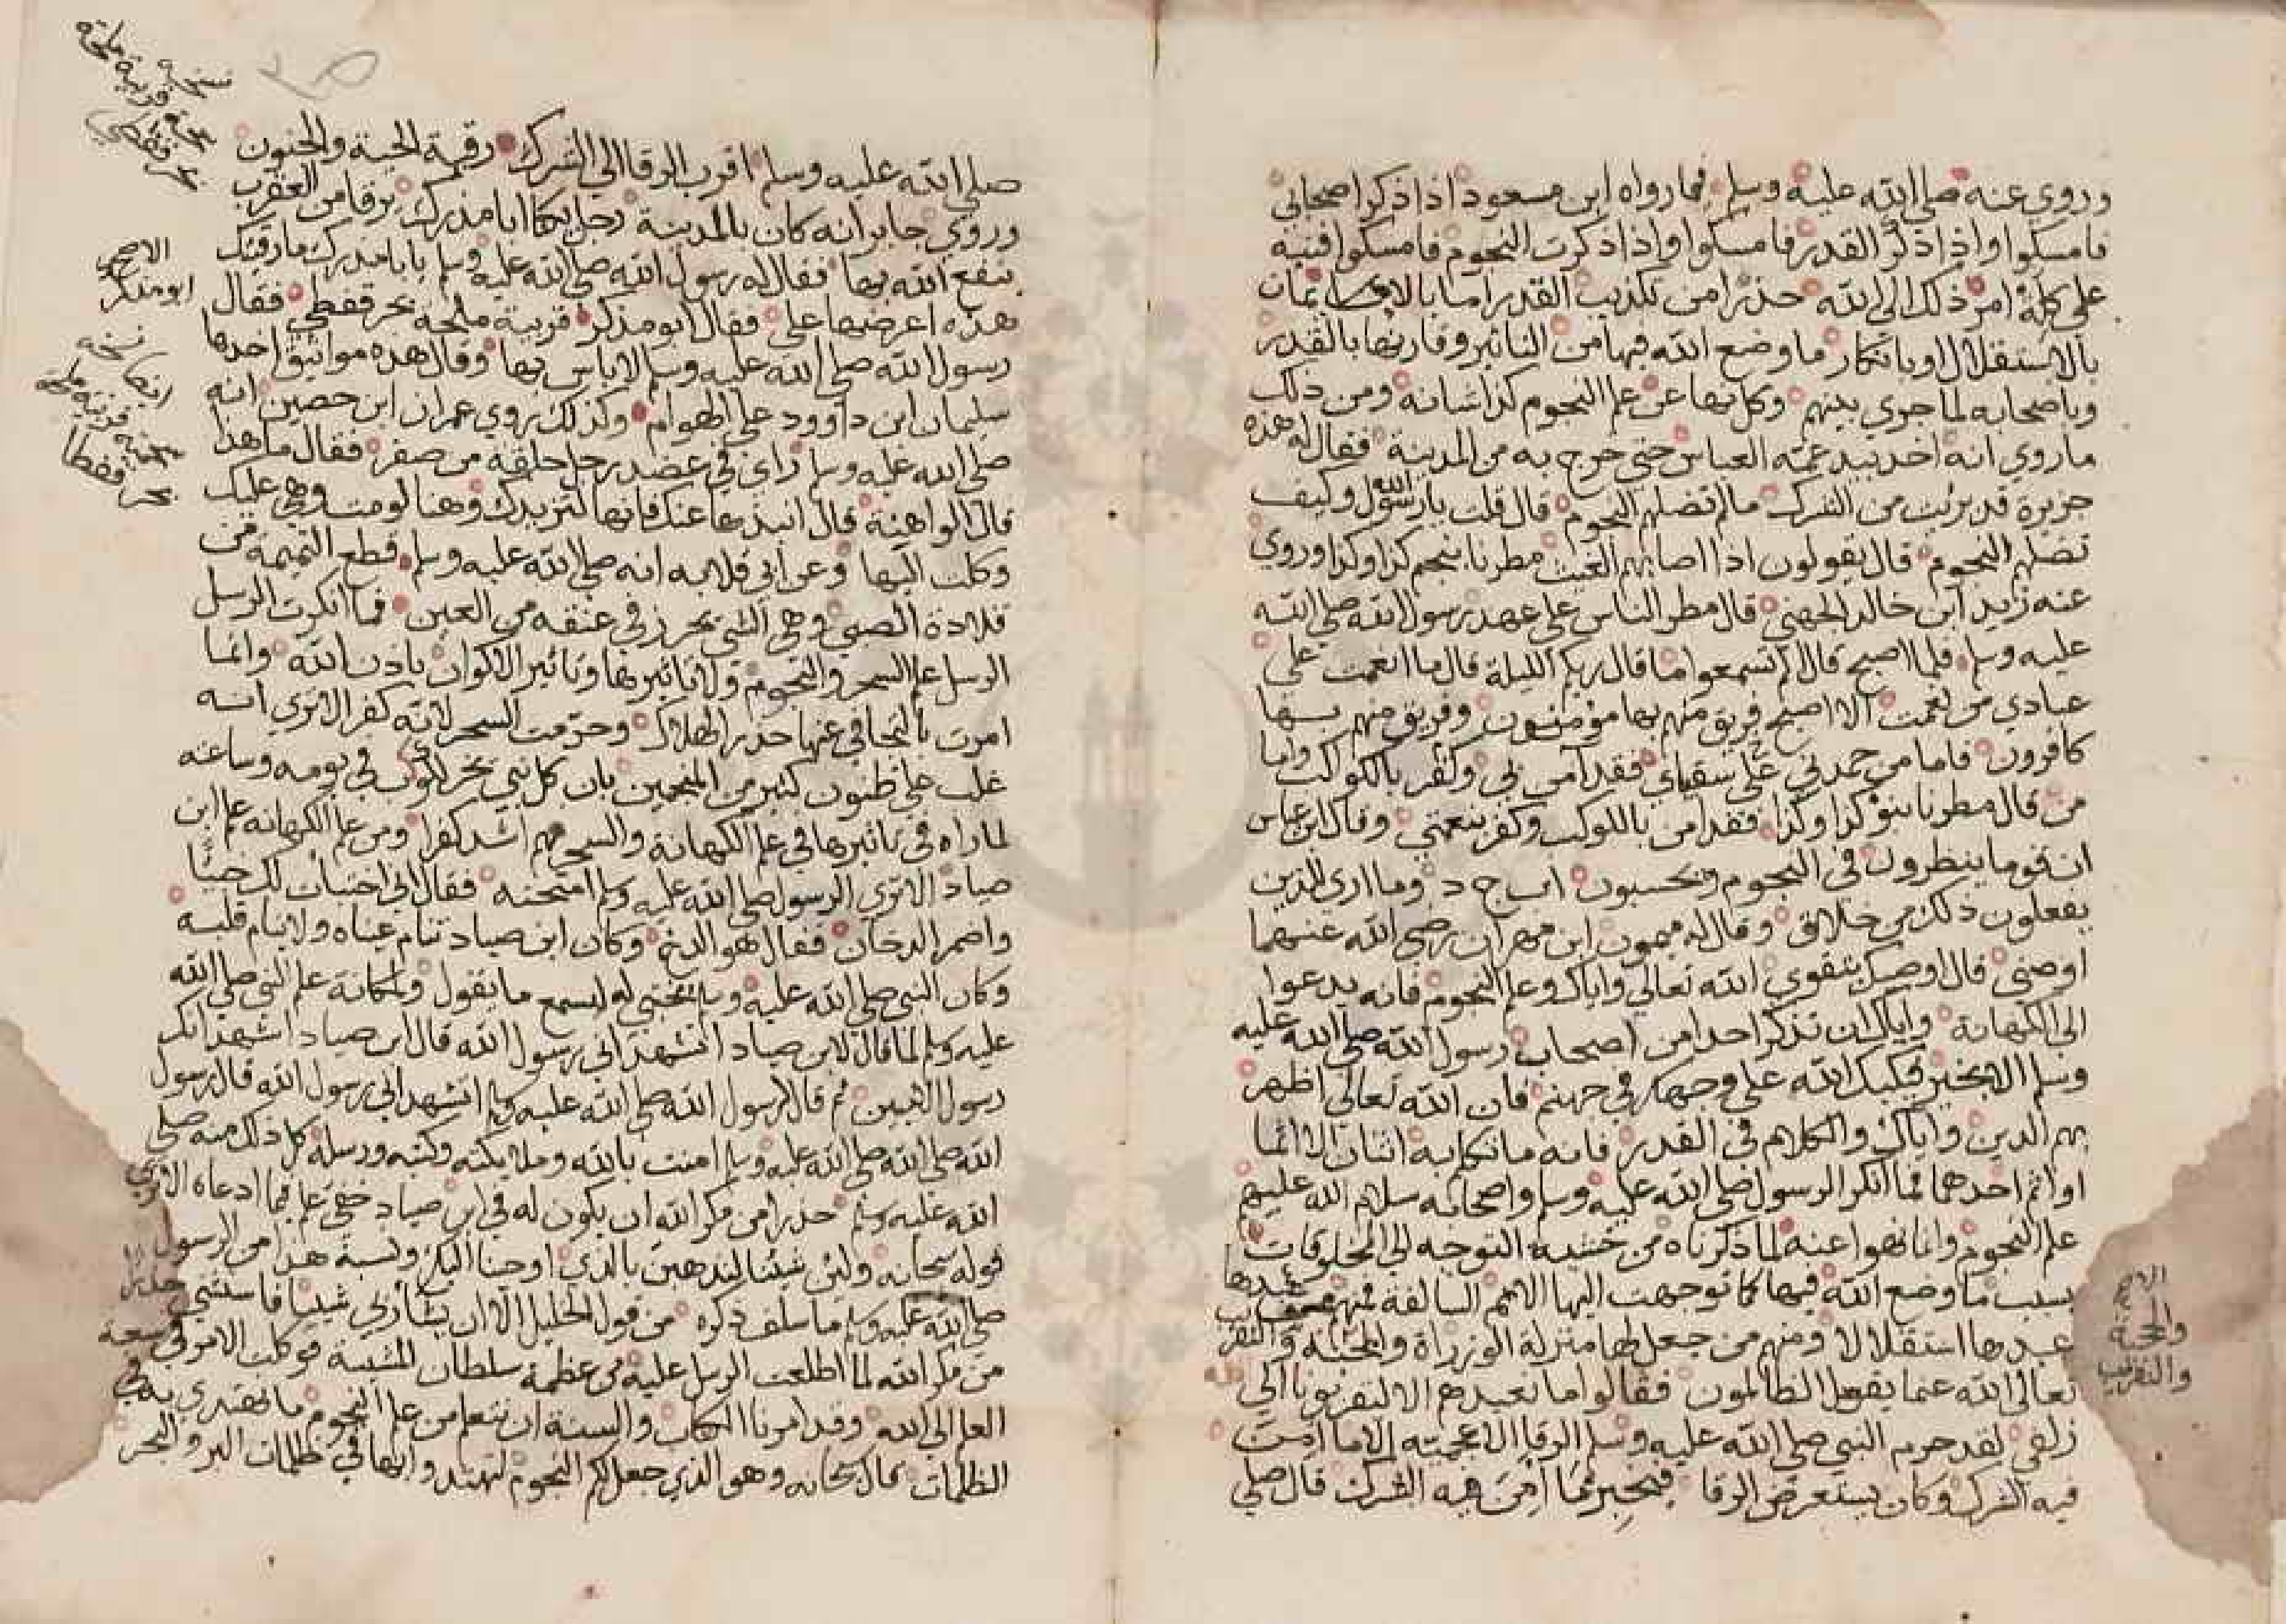 وروي عنه صلي الله عليه وسلم فيما رواه ابن مسعود اذا ذكر اصحابي
فامسكوا واذا ذكر القدر فامسكوا واذا ذكرت النجوم فامسكوا فنبه
علي كله امر ذلك الي الله حذرا من تكذيب القدر اما بالايمان
بالاستقلال او بانكار ما وضع الله فيها من التاثير وقارنها بالقدر
وباصحابه لما جري بينهم وكل بها عن علم النجوم كذا شانه ومن ذلك
ما روي انه اخد بيد عمه العباس حتي خرج به من المدينة فقال له هذه
جزيرة قد برئت من الشرك ما لم تضلهم النجوم قال قلت يارسول الله وكيف
تضلهم النجوم قال يقولون اذا اصابهم الغيث مطرنا بنجم كذا وكذا وروي
عنه زيد ابن خالد الجهني قال مطر الناس علي عهد رسول الله صلي الله
عليه وسلم فلما اصبح قال الم تسمعوا ما قال ربكم الليلة قال ما انعمت علي
عبادي من نعمت الا اصبح فريق منهم بها مؤمنون وفريق منهم بها
كافرون فاما من حمدني علي سقياي فقد آمن بي وكفر بالكواكب واما
من قال مطرنا بنؤ كذا وكذا فقد امن بالكوكب وكفر بنعمتي وقال ابن عباس
ان قوما ينظرون في النجوم ويحسبون اب ج د وما اري للذين
يفعلون ذلك من خلاق وقال له ميمون ابن مهران رضي الله عنهما
اوصني قال اوصيك بتقوي الله تعالي واياك وعلم النجوم فانه يدعوا
الي الكهانة واياك ان تذكر احدا من اصحاب رسول الله صلي الله عليه
وسلم الا بخير فيكبك الله علي وجهك في جهنم فان الله تعالي اظهر
بهم الدين واياك والكلام في القدر فانه ما تكلم به اثنان الا اثما
او اثم احدهما فما انكر الرسول صلي الله عليه وسلم واصحابه سلام الله عليهم
علم النجوم وانما نهوا عنه لما ذكرناه من خشية التوجه الي المخلوقات
بسبب ما وضع الله فيها كما توجهت اليها الامم السالفة فمنهم من
عبدها استقلالا ومنهم من جعل لها منزلة الوزراة والحجبة والتقرب
تعالي الله عما يقول الظالمون فقالوا ما نعبدهم الا ليقربونا الي الله
زلفي لقد حرم النبي صلي الله عليه وسلم الرقا الاعجميته الا ما امنت
فيه الشرك وكان يستعرض الرقا فيجيز ما امن فيه الشرك قال صلي
الامم
والحجبة
والتقريب
صلي الله عليه وسلم اقرب الرقا الي الشرك رقية الحية والجنون
وروي جابر انه كان بالمدينة رجل يكنا ابا مذكر يرقا من العقرب
ينفع الله بها فقال له رسول الله صلي الله عليه وسلم يا با مذكر ما رقيتك
هذه اعرضها علي فقال ابو مذكر قرنية ملحة بحر قفطي فقال
رسول الله صلي الله عليه وسلم لا باس بها وقال هذه مواثيق اخدها
سليمان ابن داوود علي الهوام وكذلك روي عمران ابن حصين انه
صلي الله عليه وسلم رأي في عضد رجل حلقه من صفر فقال ما هذا
قال الواهنة قال انبذها عنك فانها لتزيدك وهنا لو مت وهي عليك
وكلت اليها وعن ابي قلابه انه صلي الله عليه وسلم قطع التميمة من
قلادة الصبي وهي الشي يحرز في عنقه من العين فما انكرت الرسل
الرسل علم السحر والنجوم ولا تاثيرها وتاثير الاكوان باذن الله وانما
امرت بالتجافي عنها حذر الهلاك وحرمت السحر لانه كفر الا تري انه
غلب علي ظنون كثير من المنجمين بان كل نبي في يومه وساعته
لما راه في تاثيرها في علم الكهانة والسحر فهم اشد كفرا ومن علم الكهانه علم ابن
صياد الا تري الرسول صلي الله عليه وسلم امتحنه فقال اني اختبات لك خبيئا
واضمر الدخان فقال هو الدخ وكان ابن صياد تنام عيناه ولا ينام قلبه
وكان النبي صلي الله عليه وسلم يختبي له ليسمع ما يقول ولمكانة علم النبي صلي الله
عليه وسلم لما قال لابن صياد اتشهد اني رسول الله قال ابن صياد اشهد انك
رسول الاميين ثم قال لرسول الله صلي الله عليه وسلم اتشهد اني رسول الله قال رسول
الله صلي الله صلي الله عليه وسلم امنت بالله وملايكته وكتبه ورسله كل ذلك منه صلي
الله عليه وسلم حذرا من مكر الله ان يكون له في ابن صياد خفي علم فيما ادعاه الا تري
قوله سبحانه ولئن شئنا لنذهبن بالذي اوحينا اليك ونسبة هذا من الرسول
صلي الله عليه وسلم ما سلف ذكره من قول الخليل الا ان يشأ ربي شيئا فاستثني حذرا
من مكر الله لما اطلعت الرسل عليه من عظمة سلطان المشيئة فوكلت الامر في سعة
العلم الي الله وقد امرنا الكتاب والسنة ان نتعلم من علم النجوم ما نهتدي به في
الظلمات كما قال سبحانه وهو الذي جعل لكم النجوم لتهتدوا بها في ظلمات البر والبحر
نسخة
قرنية ملحة
بحر قفطي
الاصح
ابو مذكر
ايضا نسخه
قرنيه ملحة
بحر قفطا